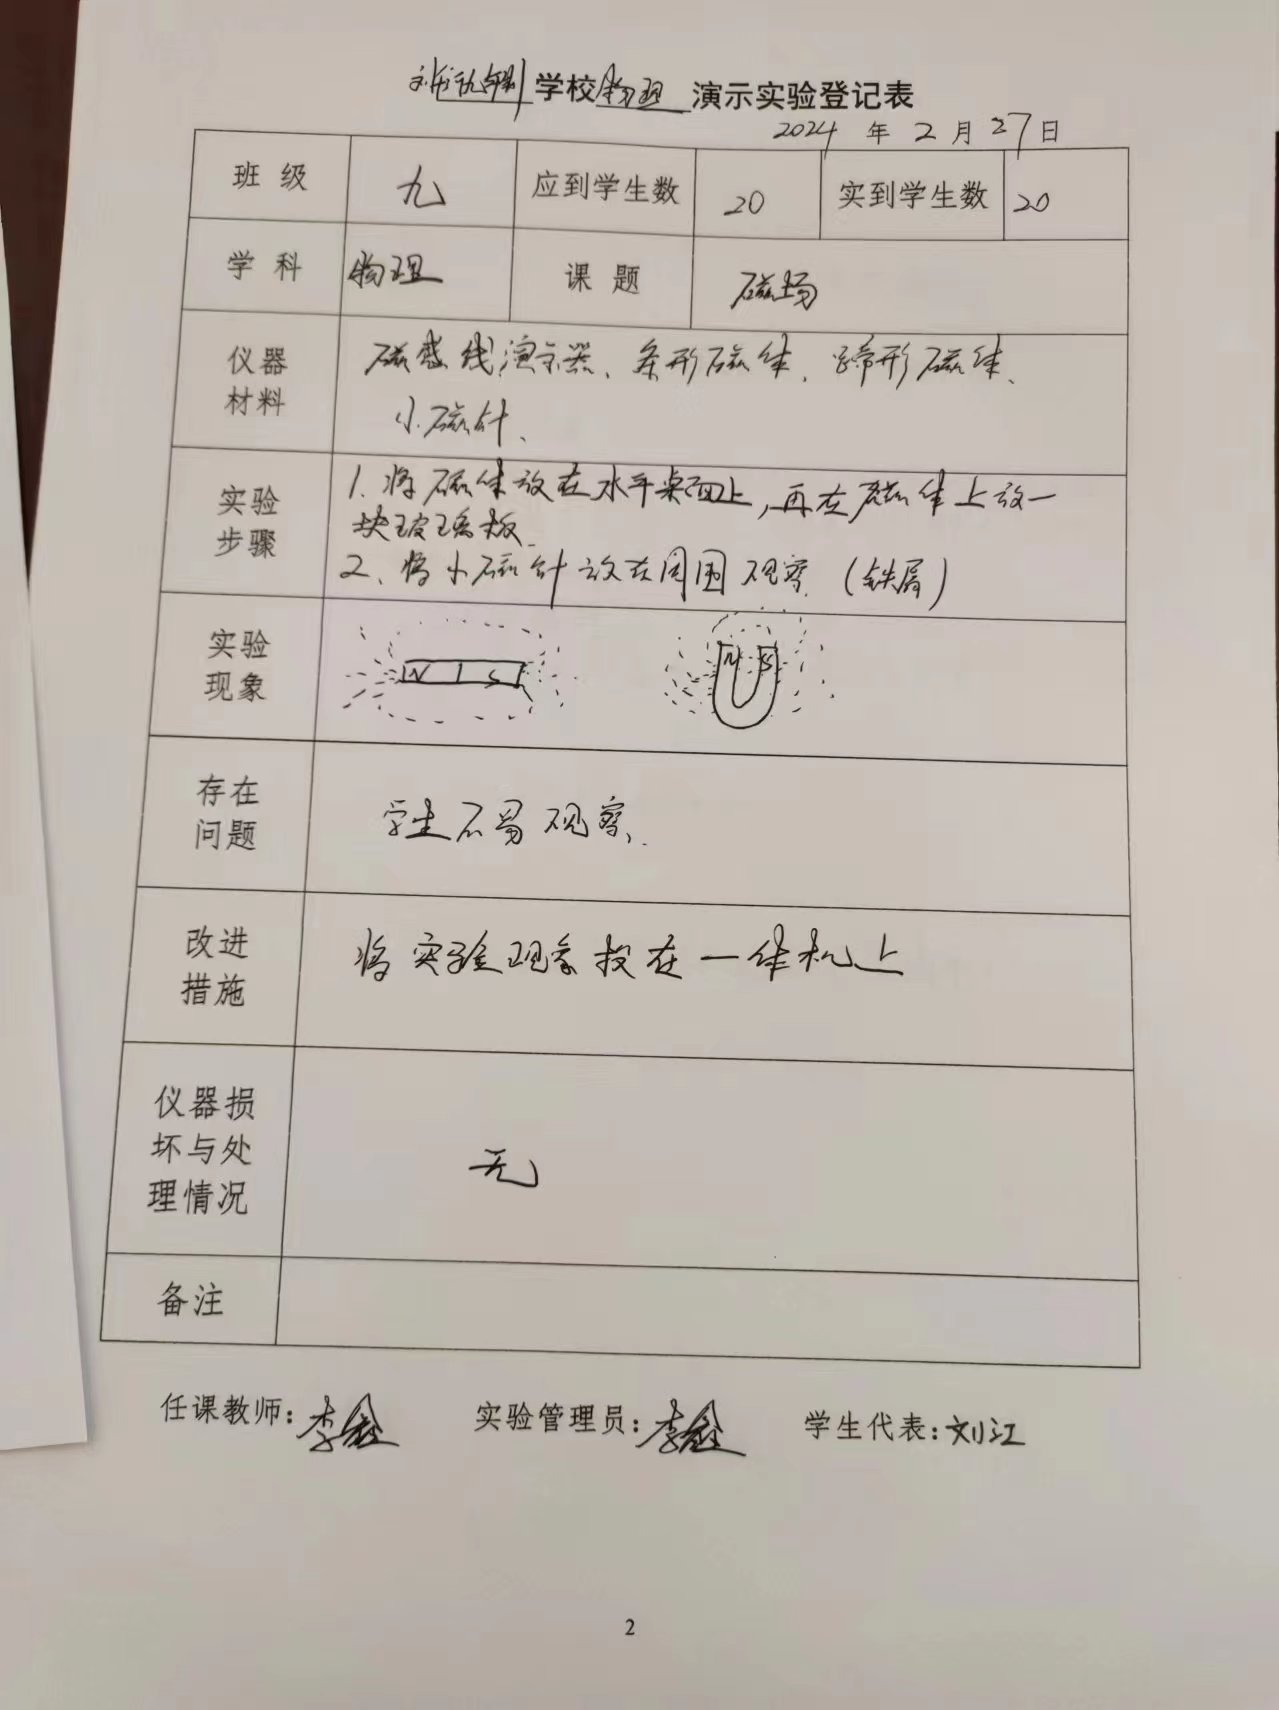 学校物理演示实验登记表
2024年2月27日
班级 九 应到学生数 20 实到学生数 20
学科 物理 课题 磁场
仪器材料 磁感线演示器、条形磁体、蹄形磁体、
小磁针、
实验步骤 1、将磁体放在水平桌面上,再在磁体上放一
块玻璃板.
2、将小磁针放在周围观察(铁屑)
实验现象 N S N S
存在问题 学生不易观察、
改进措施 将实验现象投在一体机上
仪器损坏与处理情况 无
备注
任课教师:李鑫 实验管理员:李鑫 学生代表:刘江
2